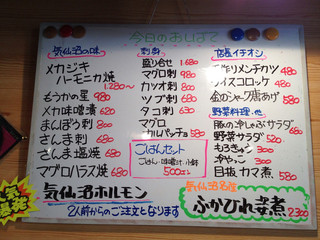 今日のおしながき
気仙沼の味
メカジキ
ハーモニカ焼
1,280~
もうかの星 980
メカ味噌漬 620
まんぼう刺 800
さんま刺 680
さんま塩焼 680
マグロハラス焼 680
刺身
盛合せ 1,680
マグロ刺 980
カツオ刺 800
ツブ刺 680
タコ刺 630
マグロ
カルパッチョ 580
ごはんセット
ごはん・味噌汁・小鉢
500円
店長イチオシ
手作りメンチカツ 480
ライスコロッケ 480
金のシャク唐あげ 580
野菜料理・他
豚の冷しゃぶサラダ 680
野菜サラダ 520
もろきゅう 300
冷やっこ 300
目抜カマ煮 580
気仙沼ホルモン
2人前からのご注文となります
気仙沼名産
ふかひれ姿煮 2300